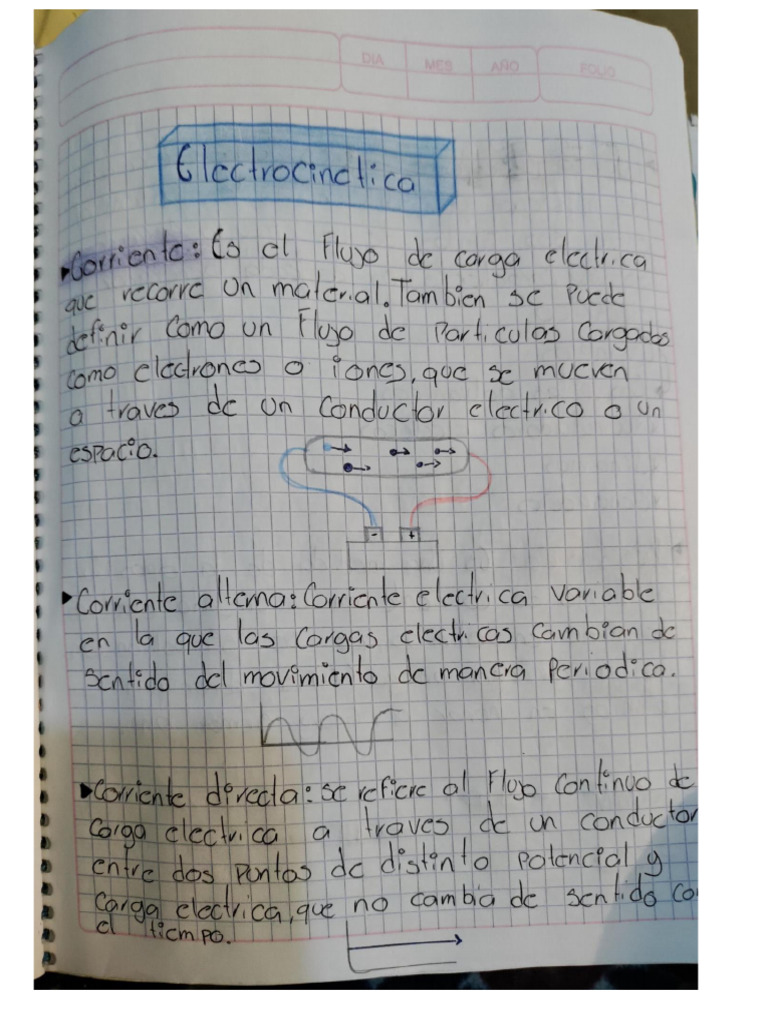 DIA MES AÑO FOLIO
Electrocinetica
Corriente: Es el Flujo de carga electrica
que recorre un material. Tambien se Puede
definir Como un Flujo de Particulas Cargadas
como electrones o iones, que se mueven
a traves de un Conductor electrico o un
espacio.
- +
Corriente alterna: Corriente electrica variable
en la que las Cargas electricas Cambian de
Sentido del movimiento de manera Periodica.
Corriente directa: se refiere al Flujo Continuo de
Carga electrica a traves de un conductor
entre dos Puntos de distinto Potencial y
Carga electrica, que no cambia de sentido co
el tiempo.